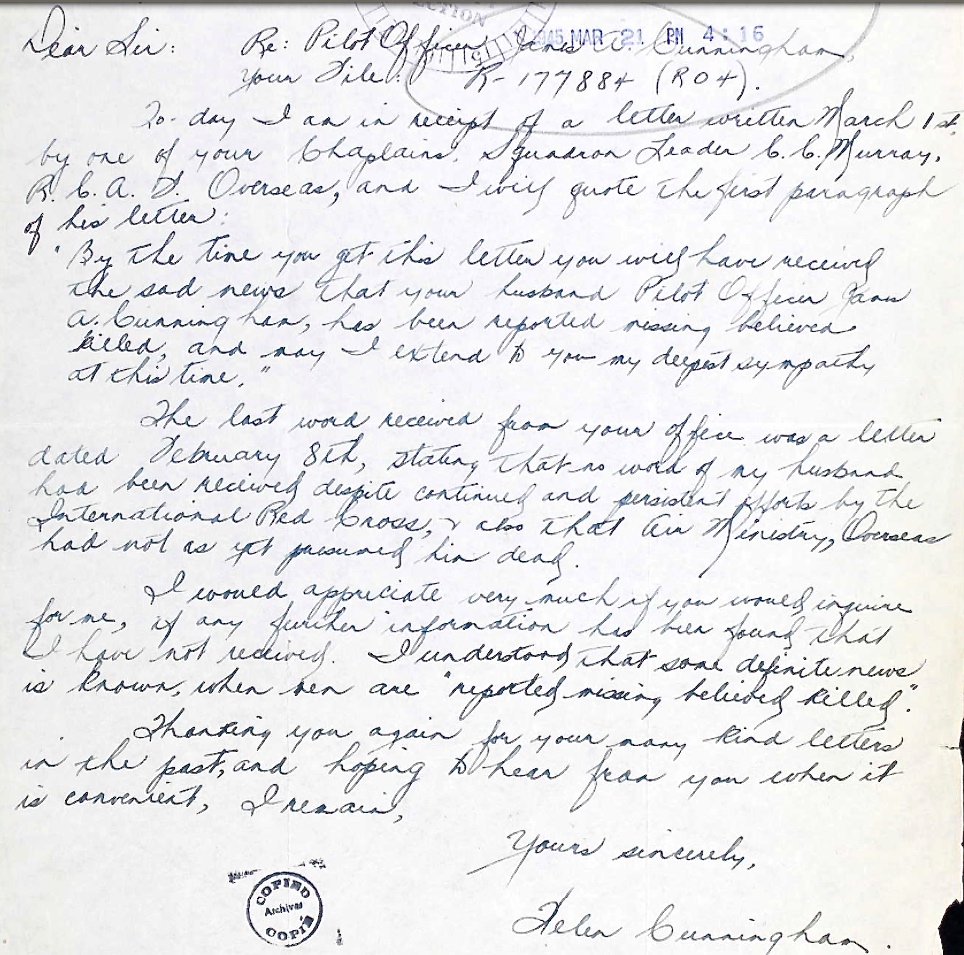 1945 MAR 21 PM 4:16
Dear Sir: Re: Pilot Officer James A. Cunningham,
Your File: R-177884 (RO4).
To-day I am in receipt of a letter written March 1st.
by one of your Chaplains, Squadron Leader C. C. Murray,
R.C.A.F. Overseas, and I will quote the first paragraph
of his letter:
"By the time you get this letter you will have received
the sad news that your husband Pilot Officer James
A. Cunningham, has been reported missing believed
killed, and may I extend to you my deepest sympathy
at this time."
The last word received from your office was a letter
dated February 8th, stating that no word of my husband
had been received despite continued and persistent efforts by the
International Red Cross, & also that Air Ministry, Overseas
had not as yet presumed him dead.
I would appreciate very much if you would inquire
for me, if any further information has been found that
I have not received. I understood that some definite news
is known, when men are "reported missing believed killed".
Thanking you again for your many kind letters
in the past, and hoping to hear from you when it
is convenient, I remain,
Yours sincerely,
Helen Cunningham.
COPIED
Archives
COPIÉ